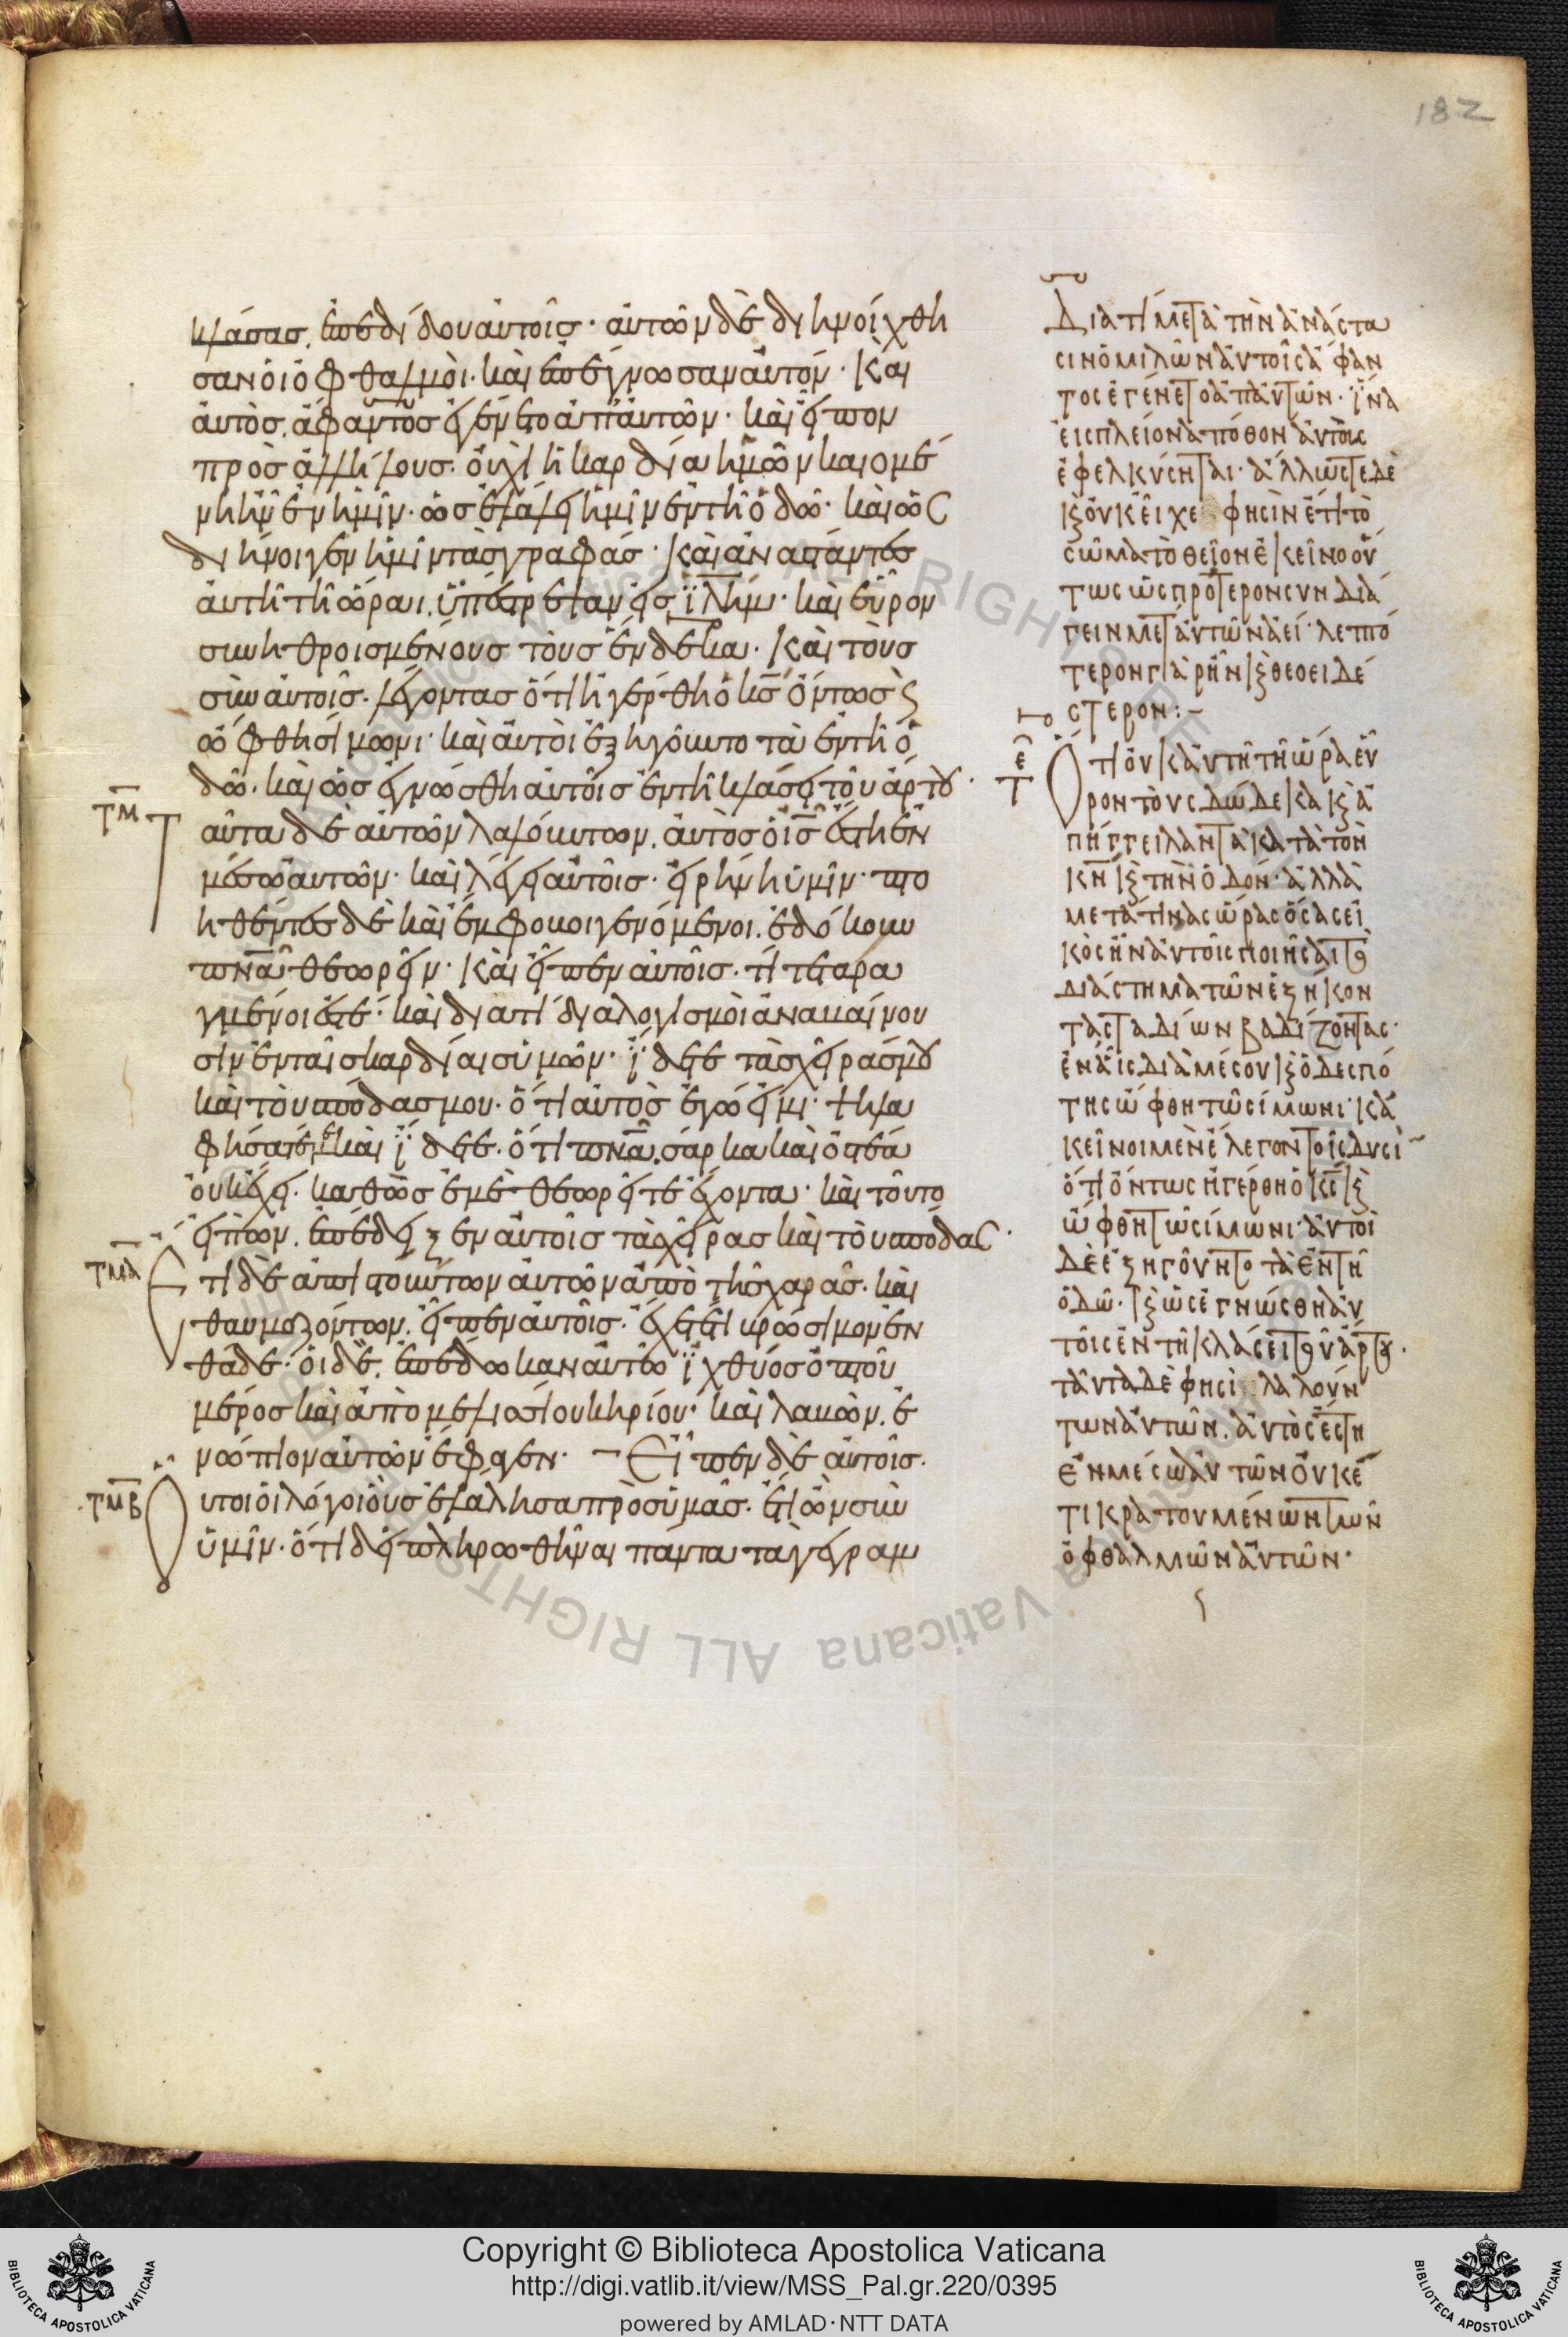 182
κλάσας, ἐπεδίδου αὐτοῖς· αὐτῶν δὲ διηνοίχθη
σαν οἱ ὀφθαλμοὶ· καὶ ἐπέγνωσαν αὐτόν· Και
αὐτὸς, ἄφαντος ἐγένετο ἀπ' αὐτῶν· καὶ εἶπον
πρὸς ἀλλήλους· οὐχὶ ἡ καρδία ἡμῶν καιομέ
νη ἦν ἐν ἡμῖν· ὡς ἐλάλει ἡμῖν ἐν τῆ ὁδῶ· καὶ ὡς
διήνοιγεν ἡμῖν τὰς γραφάς· Καὶ ἀναστάντες
αὐτῆ τῆ ὥραι, ὑπέστρεψαν εἰς ϊλημ· καὶ εὗρον
συνηθροισμένους τοὺς ἕνδεκα· Καὶ τοὺς
σὺν αὐτοῖς· λέγοντας ὅτι ἠγέρθη ὁ κς ὄντως ϗ
ὤφθη σίμωνι· καὶ αὐτοὶ ἐξηγοῦντο τὰ ἐν τῆ ὁ
δῶ· καὶ ὡς ἐγνώσθη αὐτοῖς ἐν τῆ κλάσει τοῦ ἄρτου·
τμ Ταῦτα δὲ αὐτῶν λαλούντων, αὐτὸς ὁ ις ἔστη ἐν
μέσω αὐτῶν· καὶ λέγει αὐτοῖς· εἰρήνη ὑμῖν· πτο
ηθέντες δὲ καὶ ἔμφοβοι γενόμενοι, ἐδόκουν
πνα θεωρεῖν· Καὶ εἶπεν αὐτοῖς· τί τεταρα
γμένοι ἐστέ· καὶ διατί διαλογισμοὶ ἀναβαίνου
σιν ἐν ταῖς καρδίαις ὑμῶν· ἴδετε τὰς χεῖρας μου
καὶ τοὺς πόδας μου· ὅτι αὐτὸς ἐγώ εἰμι· ψηλα
φήσατέ με καὶ ἴδετε· ὅτι πνα, σάρκα καὶ ὀστέα
οὐκ ἔχει· καθὼς ἐμὲ θεωρεῖτε ἔχοντα· καὶ τοῦτο
εἰπὼν, ἐπέδειξεν αὐτοῖς τὰς χεῖρας καὶ τοὺς πόδας·
τμα Ετι δὲ ἀπιστούντων αὐτῶν ἀπὸ τῆς χαρᾶς· καὶ
θαυμαζόντων, εἶπεν αὐτοῖς· ἔχετέ τι βρώσιμον ἐν
θάδε· οἱ δὲ, ἐπέδωκαν αὐτῶ ἰχθύος ὀπτοῦ
μέρος καὶ ἀπὸ μελισσίου κηρίου· καὶ λαβὼν, ἐ
νώπιον αὐτῶν ἔφαγεν· Εἶπεν δὲ αὐτοῖς·
τμβ Ουτοι οἱ λόγοι οὓς ἐλάλησα πρὸς ὑμᾶς· ἔτι ὢν σὺν
ὑμῖν· ὅτι δεῖ πληρωθῆναι πάντα τὰ γεγραμ
Διατί μετὰ τὴν ἀνάστα
σιν ὁμιλῶν αὐτοῖς ἄφαν
τος ἐγένετο ἀπ' αὐτῶν· ἵνα
εἰς πλείονα πόθον αὐτοὺς
ἐφελκύσηται· ἄλλως τε δὲ
ϗ οὐκ εἶχε φησὶν ἔτι τὸ
σῶμα τὸ θεῖον ἐκεῖνο οὕ
τως ὡς πρότερον συνδιά
γειν μετ' αὐτῶν ἀεί· λεπτό
τερον γὰρ ἦν ϗ θεοειδέ
στερον:–
Οτι οὐκ αὐτῆ τῆ ὥρα εὗ
ρον τοὺς δώδεκα ϗ ἀ
πήγγειλαν τὰ κατὰ τὸν
κν ϗ τὴν ὁδόν· ἀλλὰ
μετά τινας ὥρας ὅσας εἰ
κὸς ἦν αὐτοῖς ποιῆσαι τοῦ
διάστημα τῶν ἑξήκον
τα σταδίων βαδίζοντας·
ἐν αἷς διὰ μέσου ϗ ὁ δεσπό
της ὤφθη τῶ σίμωνι· κἀ
κεῖνοι μὲν ἔλεγον τοῖς δυσὶ
ὅτι ὄντως ἠγέρθη ὁ κς ϗ
ὤφθη τῶ σίμωνι· αὐτοὶ
δὲ ἐξηγοῦντο τὰ ἐν τῆ
ὁδῶ· ϗ ὡς ἐγνώσθη αὐ
τοῖς ἐν τῆ κλάσει τοῦ ἄρτου·
ταῦτα δὲ φησὶ λαλούν
των αὐτῶν, αὐτὸς ἔστη
ἐν μέσω αὐτῶν οὐκέ
τι κρατουμένων τῶν
ὀφθαλμῶν αὐτῶν·
Copyright © Biblioteca Apostolica Vaticana
http://digi.vatlib.it/view/MSS_Pal.gr.220/0395
powered by AMLAD·NTT DATA
BIBLIOTECA APOSTOLICA VATICANA
BIBLIOTECA APOSTOLICA VATICANA